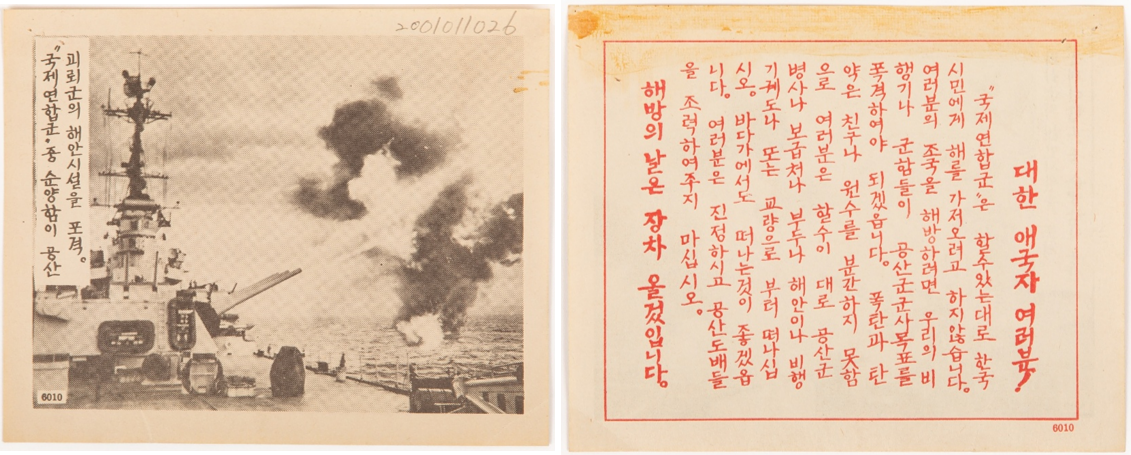 2001011026
“국제연합군” 중 순양함이 공산
괴뢰군의 해안시설을 포격。
6010
대한 애국자 여러분!
“국제연합군”은 할수있는대로 한국
시민에게 해를 가저오려고 하지않습니다。
여러분의 조국을 해방하려면 우리의 비
행기나 군함들이 공산군군사목표를
폭격하여야 되겠읍니다。 폭탄과 탄
약은 친구나 원수를 분간하지 못함
으로 여러분은 할수이 대로 공산군
병사나 보급처나 부두나 해안이나 비행
기궤도나 또는 교량으로 부터 떠나십
시오。 바다가에서도 떠나는것이 좋겠읍
니다。 여러분은 진정하시고 공산도배들
을 조력하여주지 마십시오。
해방의 날은 장차 올것입니다。
6010